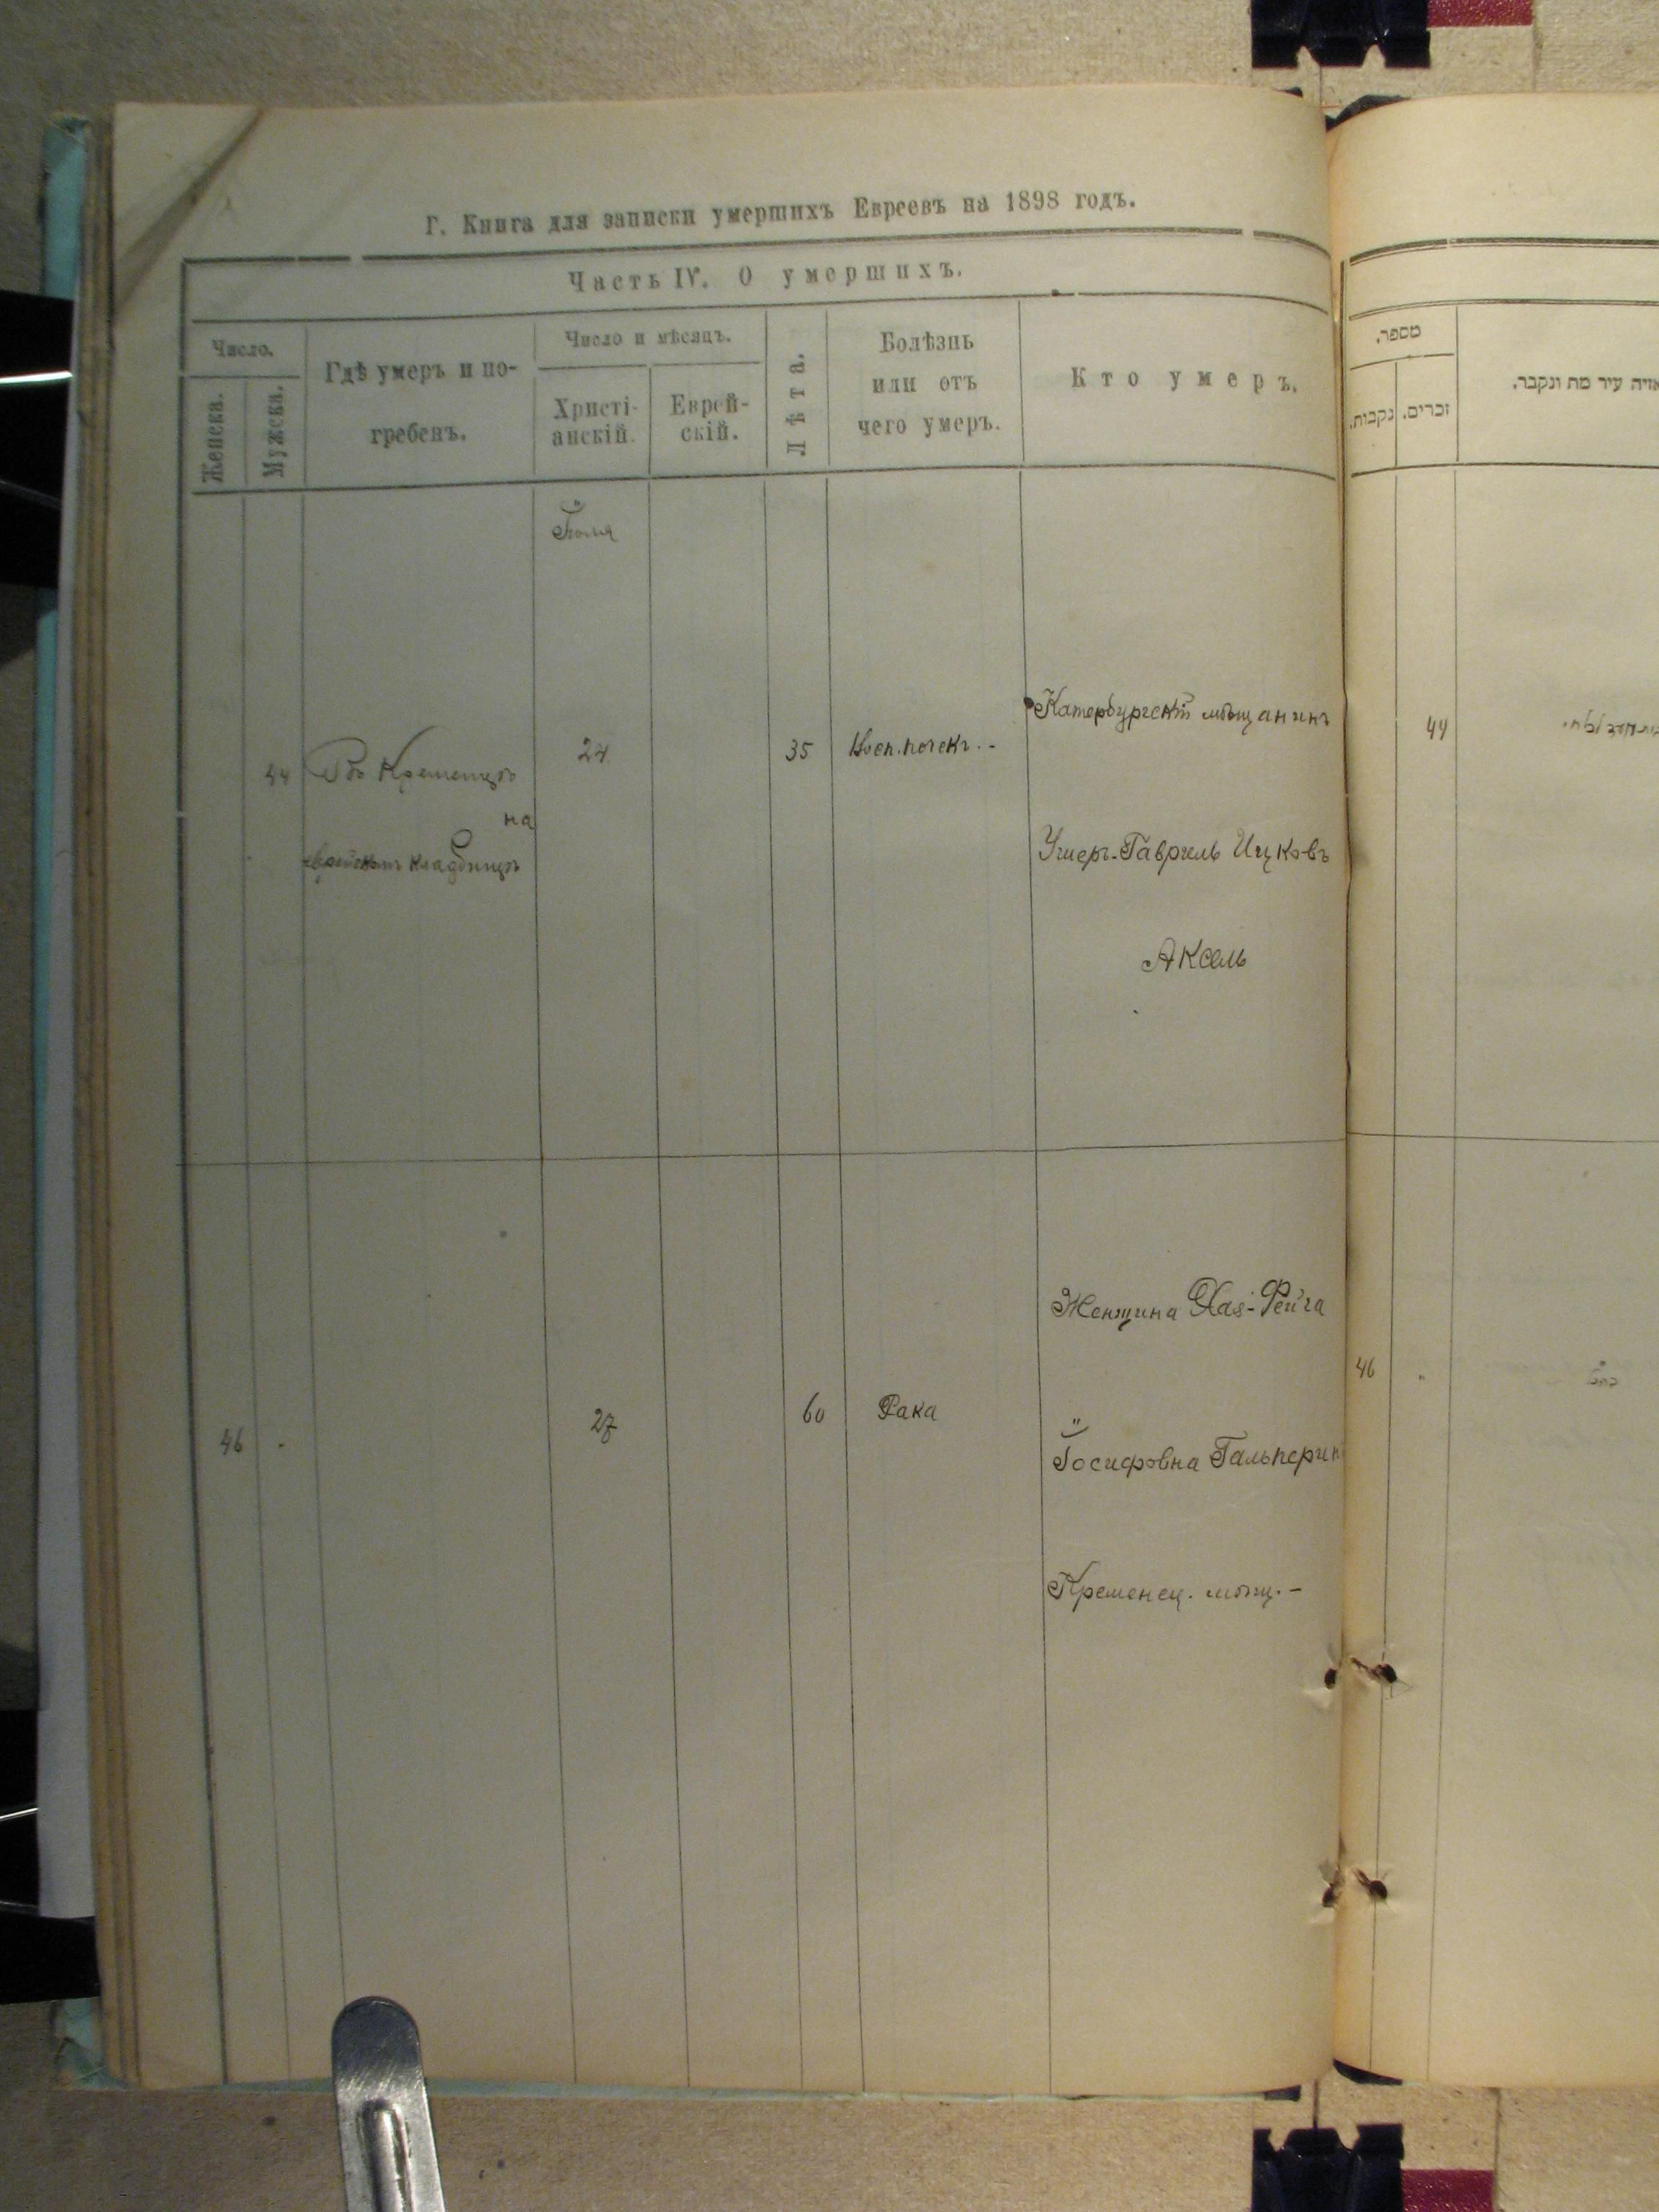 Г. Книга для записки умершихъ Евреевъ на 1898 годъ.
Часть IV. О умершихъ.
Число.
Женска.
Мужска.
Гдѣ умеръ и по-
гребенъ.
Число и мѣсяцъ.
Христі-
анскій.
Еврей-
скій.
Лѣта.
Болѣзнь
или отъ
чего умеръ.
Кто умеръ.
44
Въ Кременцѣ
на
еврейскомъ кладбищѣ
24
35
Восп. почекъ. -
Катербургскій мѣщанинъ
Ушеръ-Гаврель Ицковъ
Аксель
46
27
60
Рака
Женщина Хая-Фейга
Іосифовна Гальперин
Кременец. мѣщ. -
מספר.
נקבות.
זכרים.
עיר מת ונקבר.
44
46